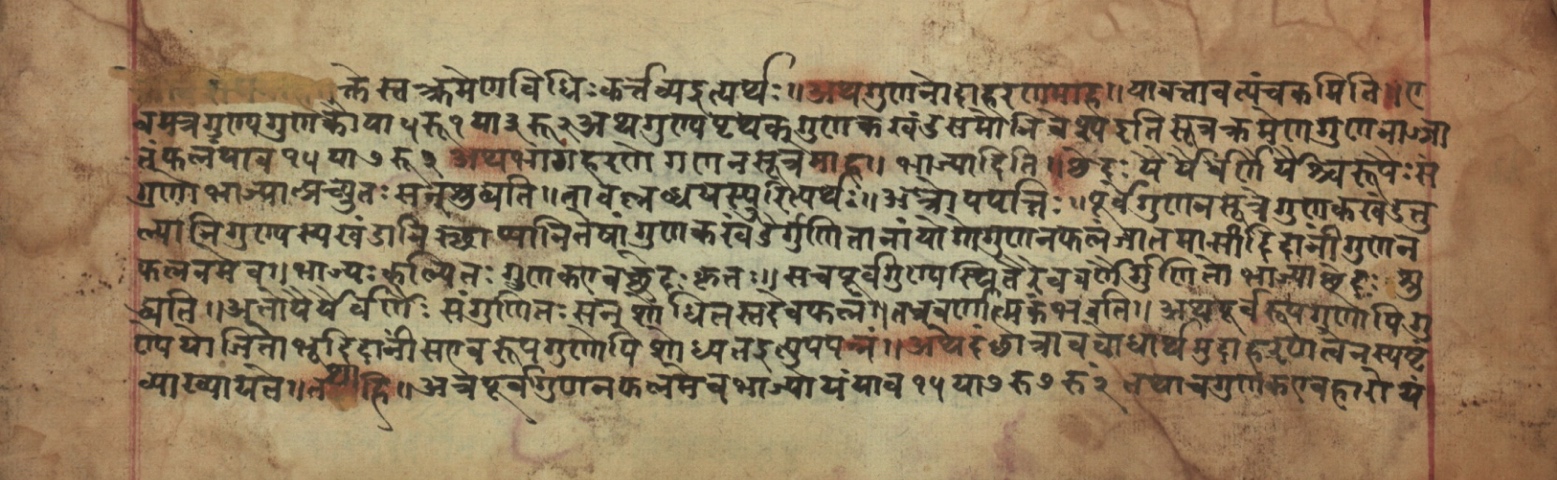 क्ते स्वक्रमेणविधिः कर्त्तव्यइत्यर्थः ॥ अथगुणनोदाहरणमाह ॥ यावत्तावत्पंचकमिति ॥ ए
वमत्रगुण्यगुणकौ या ५ रू १ या ३ रू २ अथगुण्यपृथक्गुणकखंडसमोनिवेश्यइतिसूत्रक्रमेणगुणनाज्जा
तंफलंयाव १५ या ७ रू २ अथभागहरणे गणनसूत्रमाह ॥ भाज्यादिति ॥ छेदः यैर्यैर्वर्णैर्यैश्चरूपैः स
गुणो भाज्या अच्युतः सन्शुद्ध्यति ॥ तावल्लब्धयस्युरित्यर्थः ॥ अत्रोपपत्तिः ॥ पूर्वगुणनसूत्रे गुणकखंडतु
ल्यानिगुण्यस्यखंडानि स्थाप्यानितेषां गुणकखंडैर्गुणितानां योगोगुणनफलंजातमासीदिदानींगुणन
फलनमेव ॥ भाज्यः कल्पितः गुणकएवछेदः कृतः ॥ सचपूर्वगुण्यस्थितैरेववर्णैर्गुणितो भाज्याछुदः शु
द्ध्यति ॥ अतोयैर्यैर्वर्णैः संगुणितः सन् शोधितस्तदेवफलं ॥ तत्रवर्णात्मकंभवति ॥ अथपूर्वरूपगुणोपिगु
ण्येयोजितोभूदिदानींसएवरूपगुणोपि शोध्यतइत्युपपन्नं ॥ अथेदंछात्रावबोधार्थमुदाहरणेतत्स्पष्टं
व्याख्यायते ॥ तथाहि ॥ अत्रपूर्वगुणनफलमेवभाज्योयंयाव १५ या ७ रू २ तथाचगुणकएवहारोयं